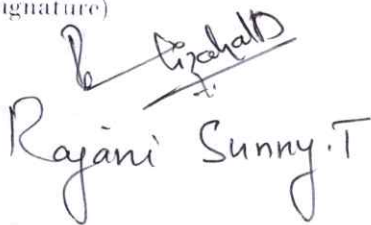 ignature)
Rajani Sunny.T